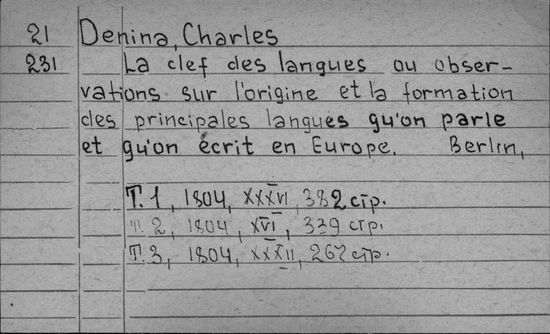 21 Denina, Charles
231 La clef des langues ou obser-
vations sur l'origine et la formation
des principales langues qu'on parle
et qu'on écrit en Europe. Berlin,
T. 1, 1804, XXXVI, 382 стр.
T. 2, 1804, XVI, 339 стр.
T. 3, 1804, XXXII, 267 стр.